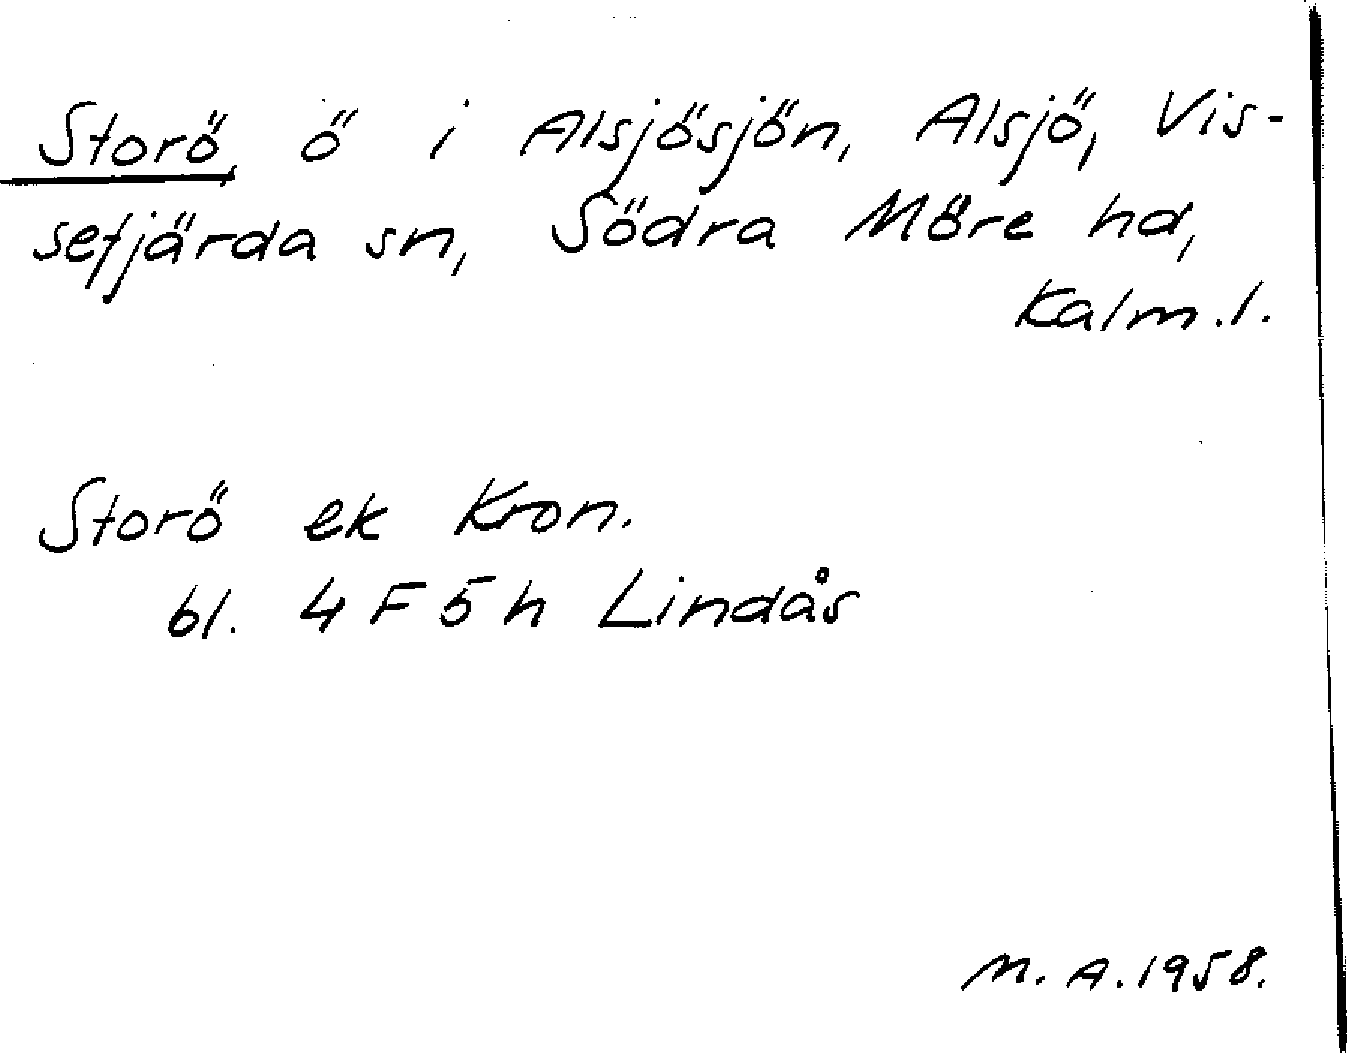 Storö, ö i Alsjösjön, Alsjö, Vis-
sefjärda sn, Södra Möre hd,
Kalm.l.
Storö ek Kron.
bl. 4 F 5 h Lindås
M.A.1958.